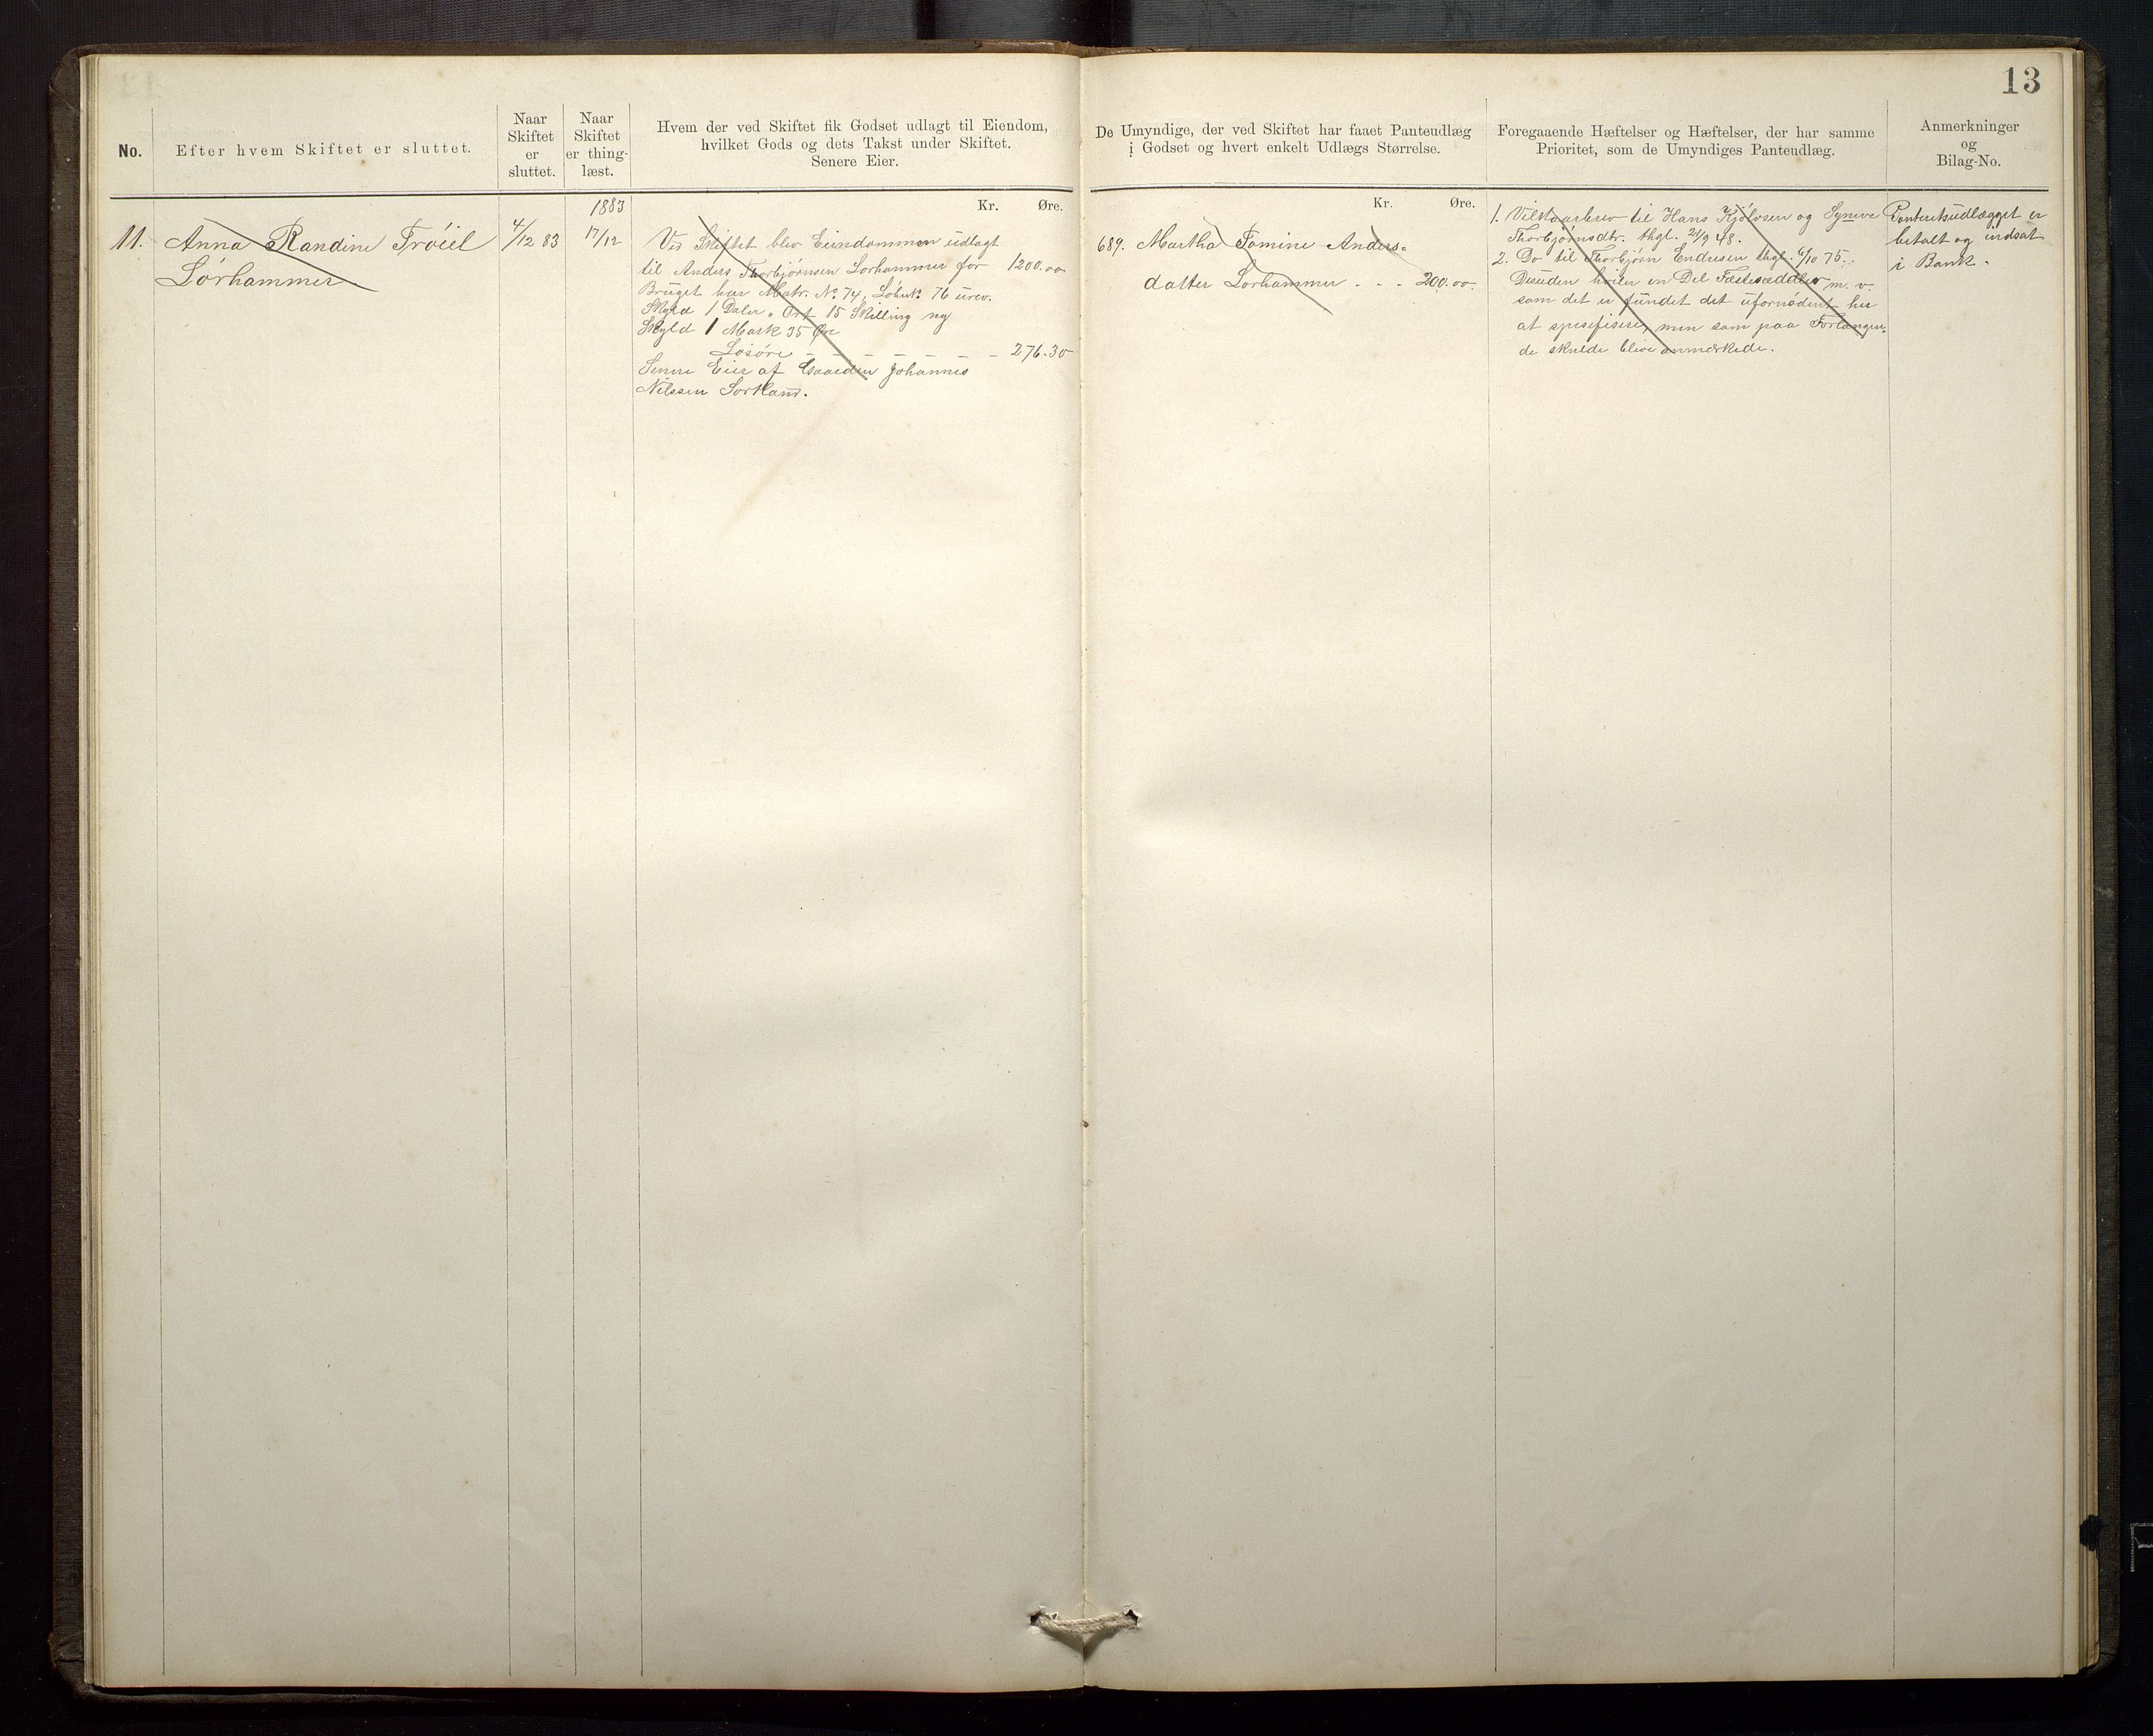 13
No.
Efter hvem Skiftet er sluttet.
Naar
Skiftet
er
sluttet.
Naar
Skiftet
er thing-
læst.
Hvem der ved Skiftet fik Godset udlagt til Eiendom,
hvilket Gods og dets Takst under Skiftet.
Senere Eier.
De Umyndige, der ved Skiftet har faaet Panteudlæg
i Godset og hvert enkelt Udlægs Størrelse.
Foregaaende Hæftelser og Hæftelser, der har samme
Prioritet, som de Umyndiges Panteudlæg.
Anmerkninger
og
Bilag-No.
11. Anna Randine Trøiel
Lørhammer
4/12 83
1883
17/12
Kr. Øre.
Ved Skiftet blev Eiendommen udlagt
til Anders Thorbjørnsen Lørhammer for 1200.00
Bruget har Matr. No. 74, Løbeno. 76 urev.
Skyld 1 Daler " Ort 15 Skilling ny
Skyld 1 Mark 35 Øre
Løsøre - - - - - - - 276.30
Senere Eier af Gaarden Johannes
Nilssen Sortland.
Kr. Øre.
689. Martha Tomine Anders-
datter Lørhammer . - - 200.00.
1. Vilkaarsbrev til Hans Kjølvsen og Syneve
Thorbjørnsdtr. thgl. 21/9 48.
2. Do til Thorbjørn Endresen thgl. 6/10 75.
Desuden hviler en Del Fæstesæddler m. v.
som det er fundet det ufornødent her
at spesifisere, men som paa Forlangen-
de skulde blive anmerkede.
Panteretsudlægget er
betalt og indsat
i Bank.